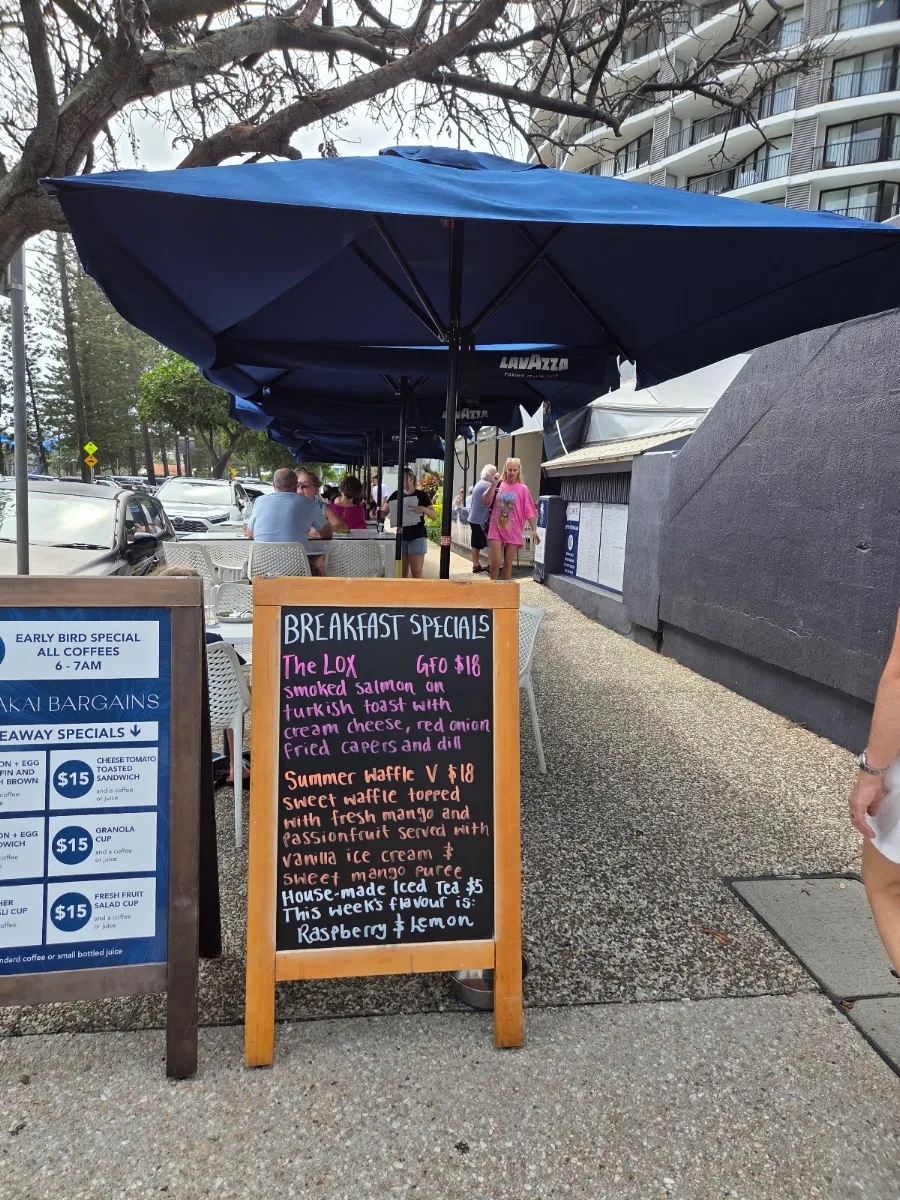 LAVAZZA
TORINO, ITALIA, 1895
LAVAZZA
EARLY BIRD SPECIAL
ALL COFFEES
6 - 7AM
AKAI BARGAINS
EAWAY SPECIALS ↓
ON + EGG
FIN AND
H BROWN
coffee
$15
CHEESE TOMATO
TOASTED
SANDWICH
and a coffee
or juice
ON + EGG
DWICH
coffee
$15
GRANOLA
CUP
and a coffee
or juice
HER
SLI CUP
offee
$15
FRESH FRUIT
SALAD CUP
and a coffee
or juice
ndard coffee or small bottled juice
BREAKFAST SPECIALS
The LOX GFO $18
smoked salmon on
turkish toast with
cream cheese, red onion
fried capers and dill
Summer Waffle V $18
sweet waffle topped
with fresh mango and
passionfruit served with
vanilla ice cream &
sweet mango puree
House-made Iced Tea $5
This week's flavour is:
Raspberry & Lemon